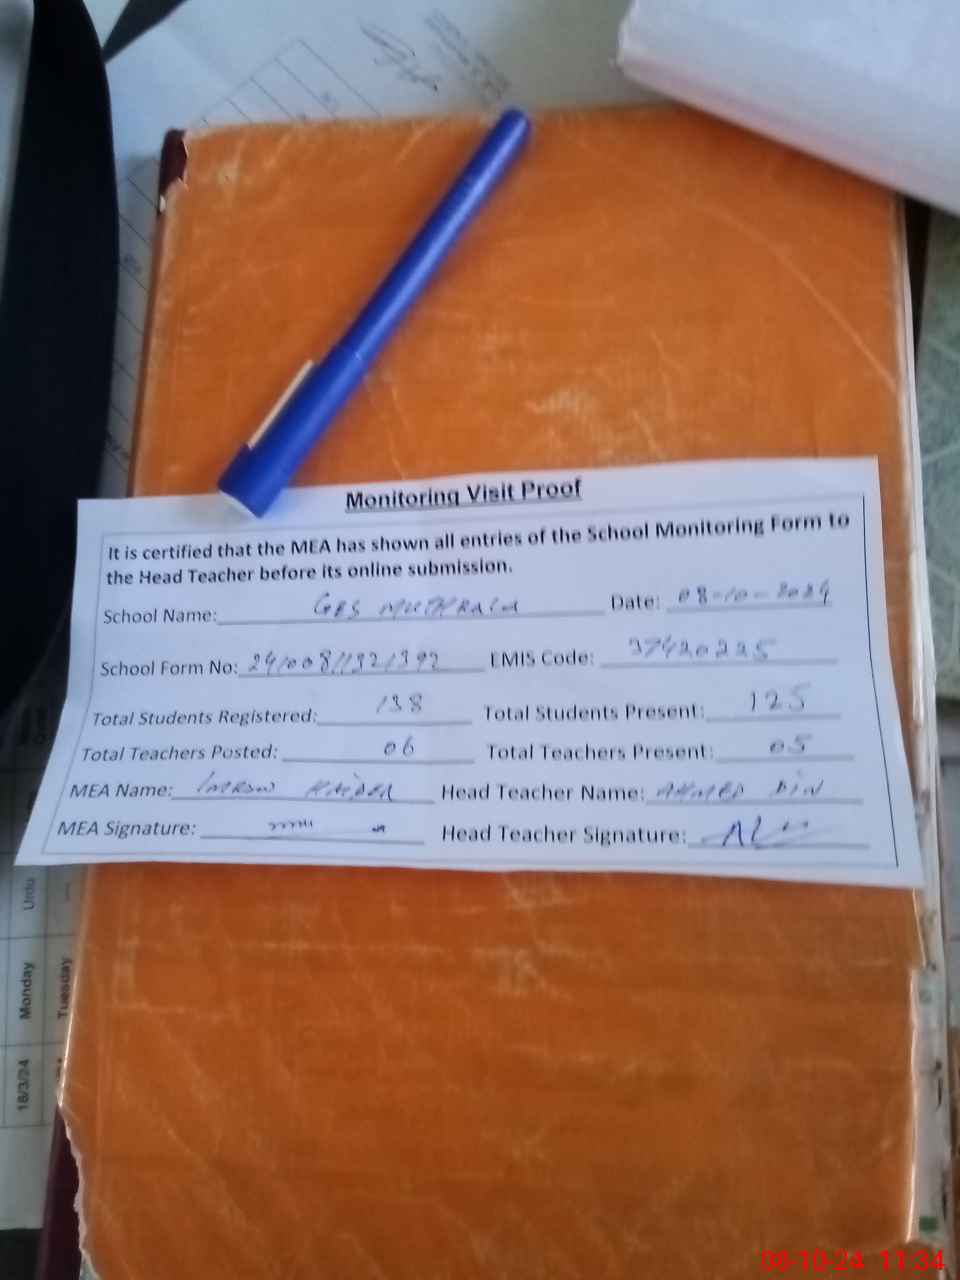 Monitoring Visit Proof
It is certified that the MEA has shown all entries of the School Monitoring Form to
the Head Teacher before its online submission.
School Name: Date: 08-10-2024
School Form No: EMIS Code: 37420225
Total Students Registered: 138 Total Students Present: 125
Total Teachers Posted: 06 Total Teachers Present: 05
MEA Name: Imran Haider Head Teacher Name: AHMED DIN
MEA Signature: Head Teacher Signature:
Urdu
Monday
Tuesday
18/3/24
08-10-24 11:34